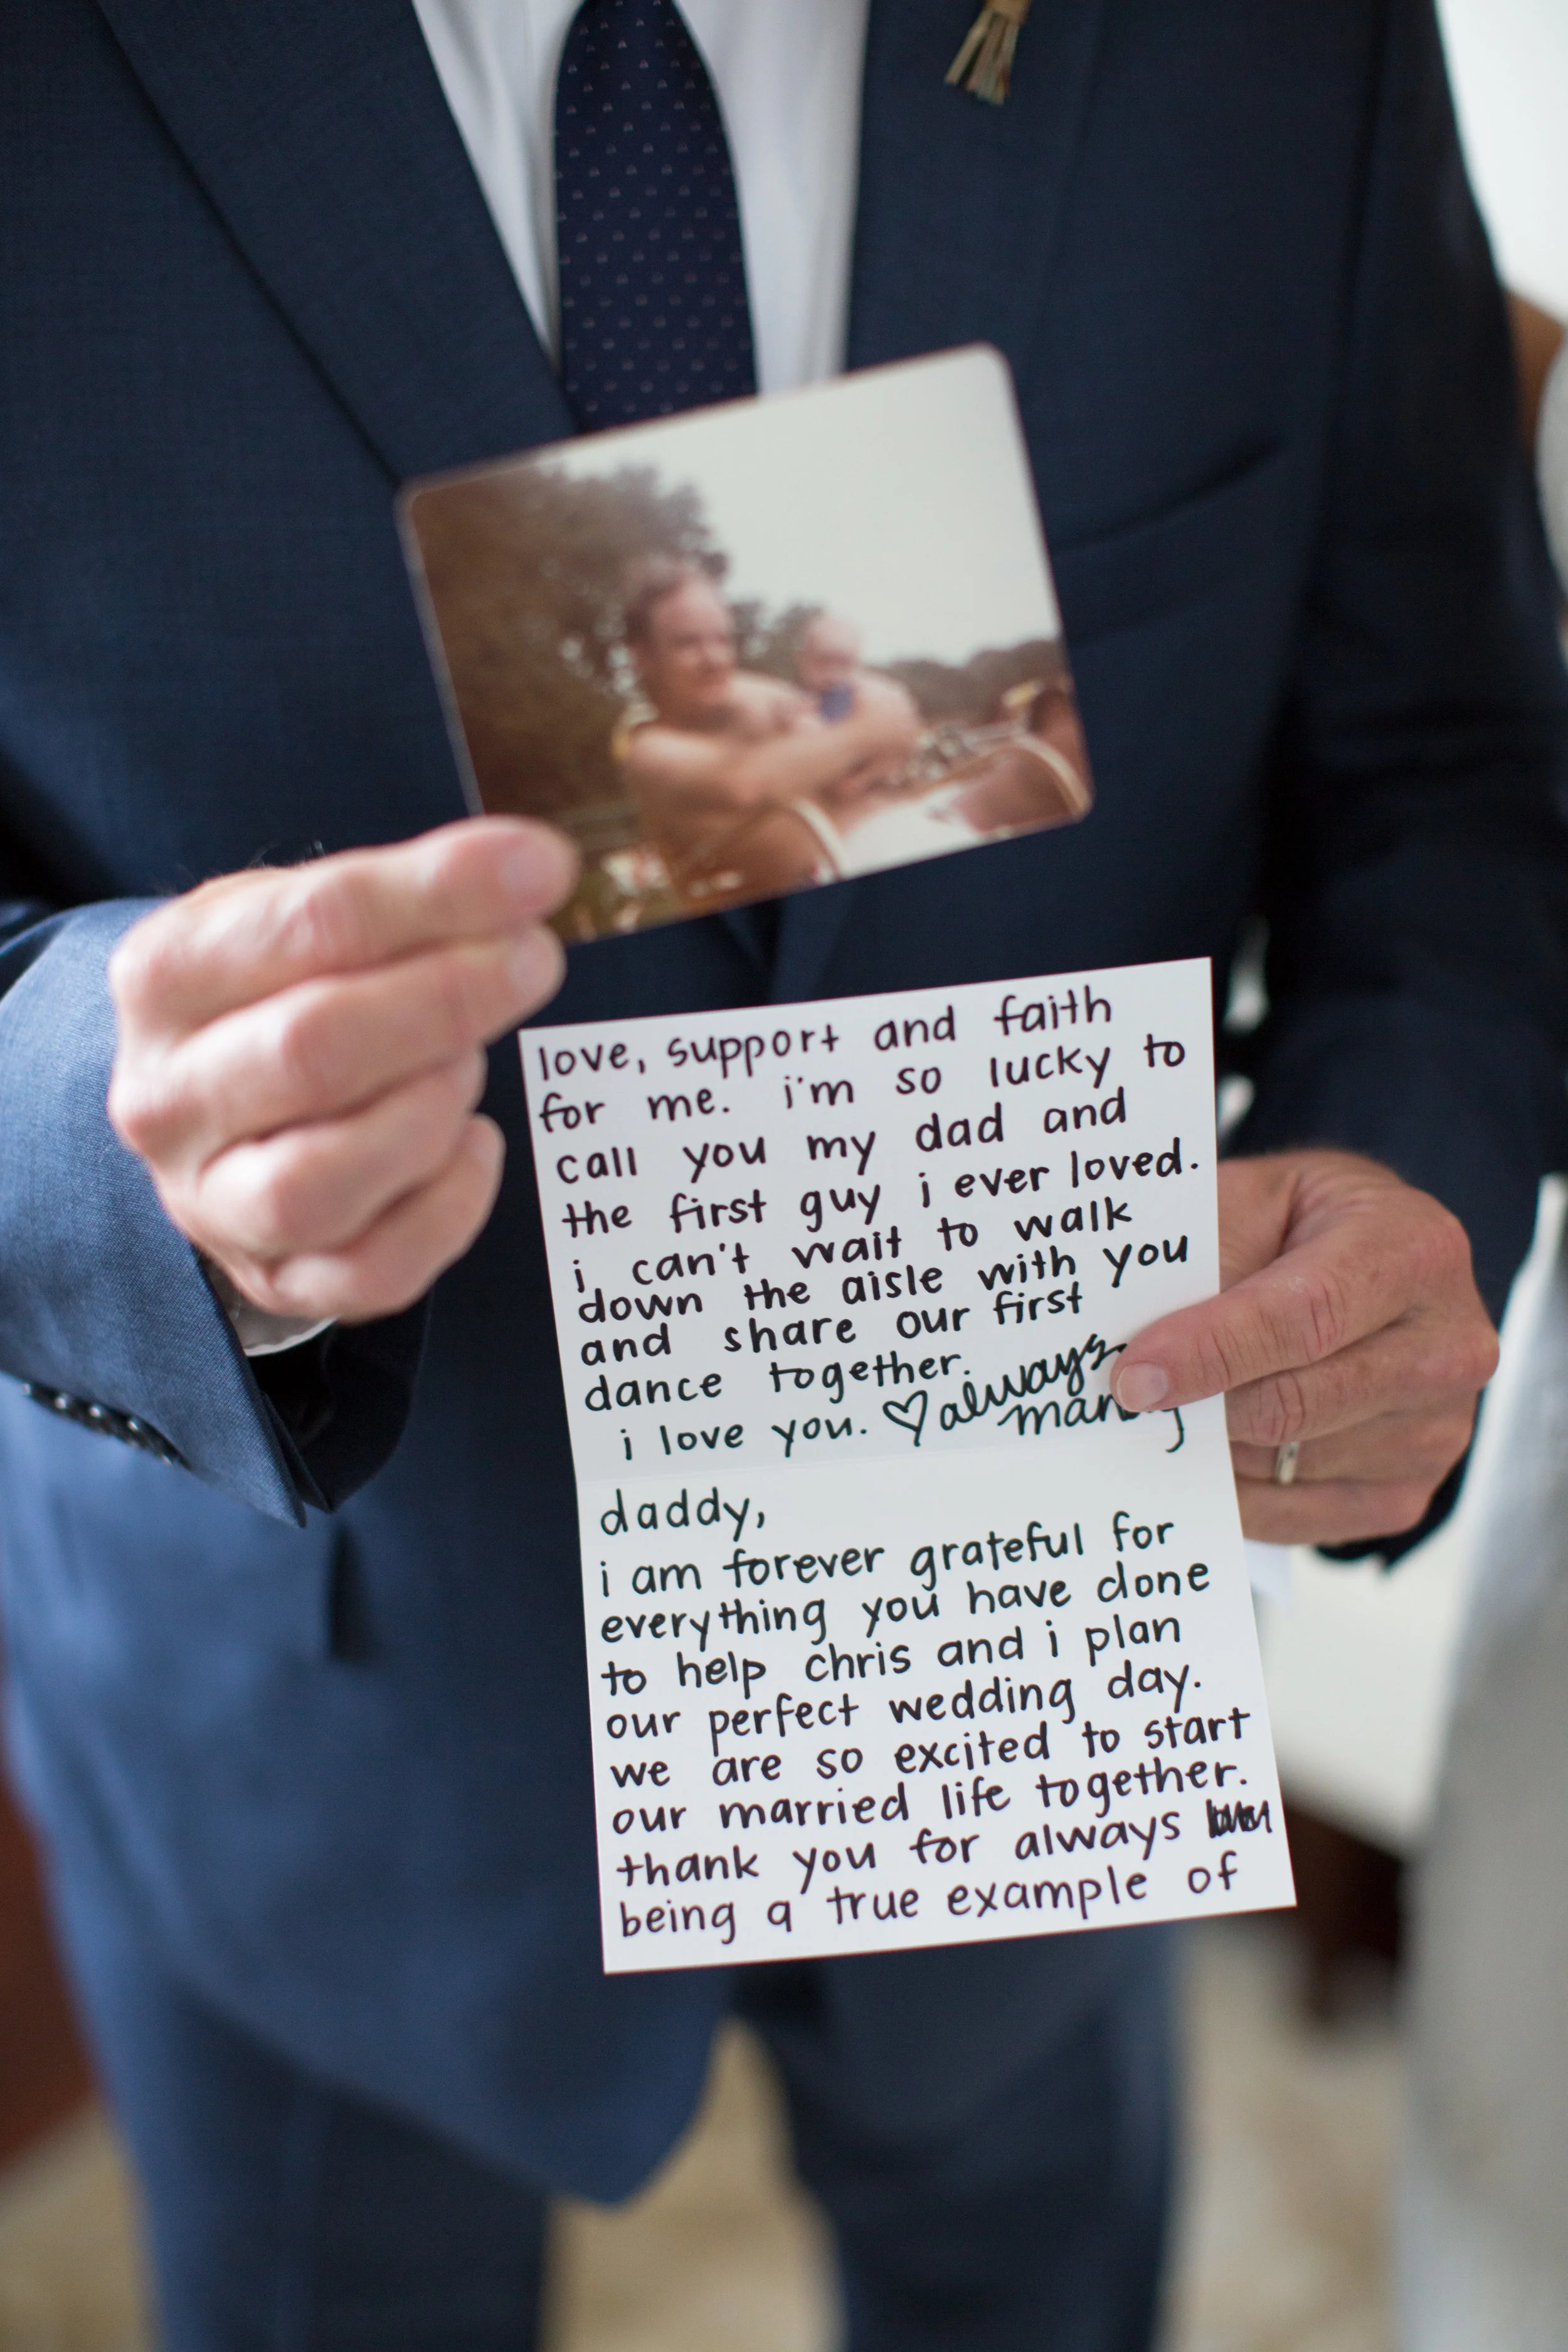 love, support and faith
for me. i'm so lucky to
call you my dad and
the first guy i ever loved.
i can't wait to walk
down the aisle with you
and share our first
dance together.
i love you. ♡ always
daddy,
i am forever grateful for
everything you have done
to help chris and i plan
our perfect wedding day.
we are so excited to start
our married life together.
thank you for always
being a true example of